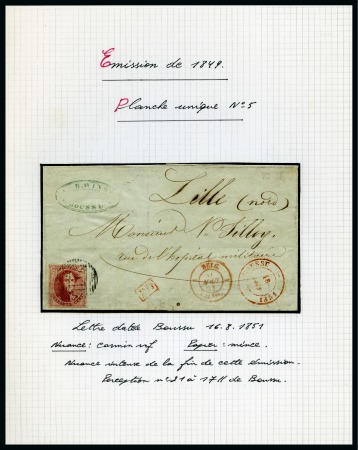 Emission de 1849.
Planche unique N°5
BOUSSU
Lille (nord)
Monsieur
rue de l'hopital militaire
BELG.
1851
Lettre datée Boussu 16.8.1851
Nuance : carmin vif Papier : mince.
Nuance intense de la fin de cette émission.
Perception n° 21 à 17 H de Boussu.